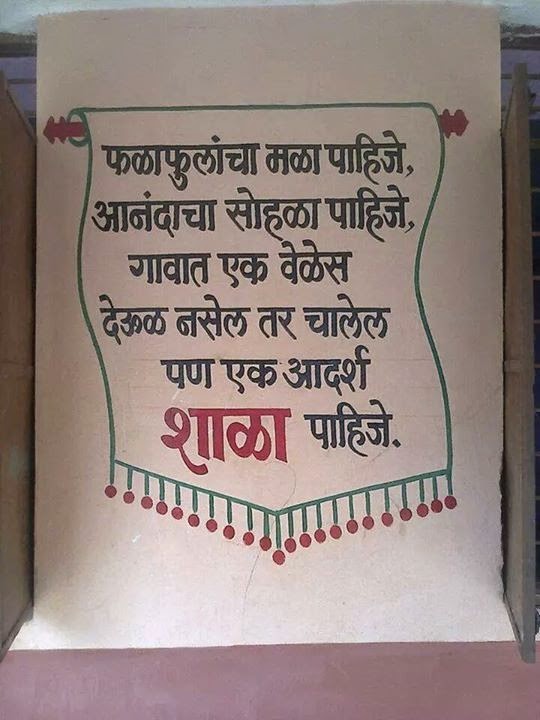 फळाफुलांचा मळा पाहिजे,
आनंदाचा सोहळा पाहिजे,
गावात एक वेळेस
देऊळ नसेल तर चालेल
पण एक आदर्श
शाळा पाहिजे.